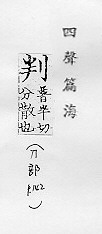 四聲篇海
判普半切
分散也
(刀部
p.162)